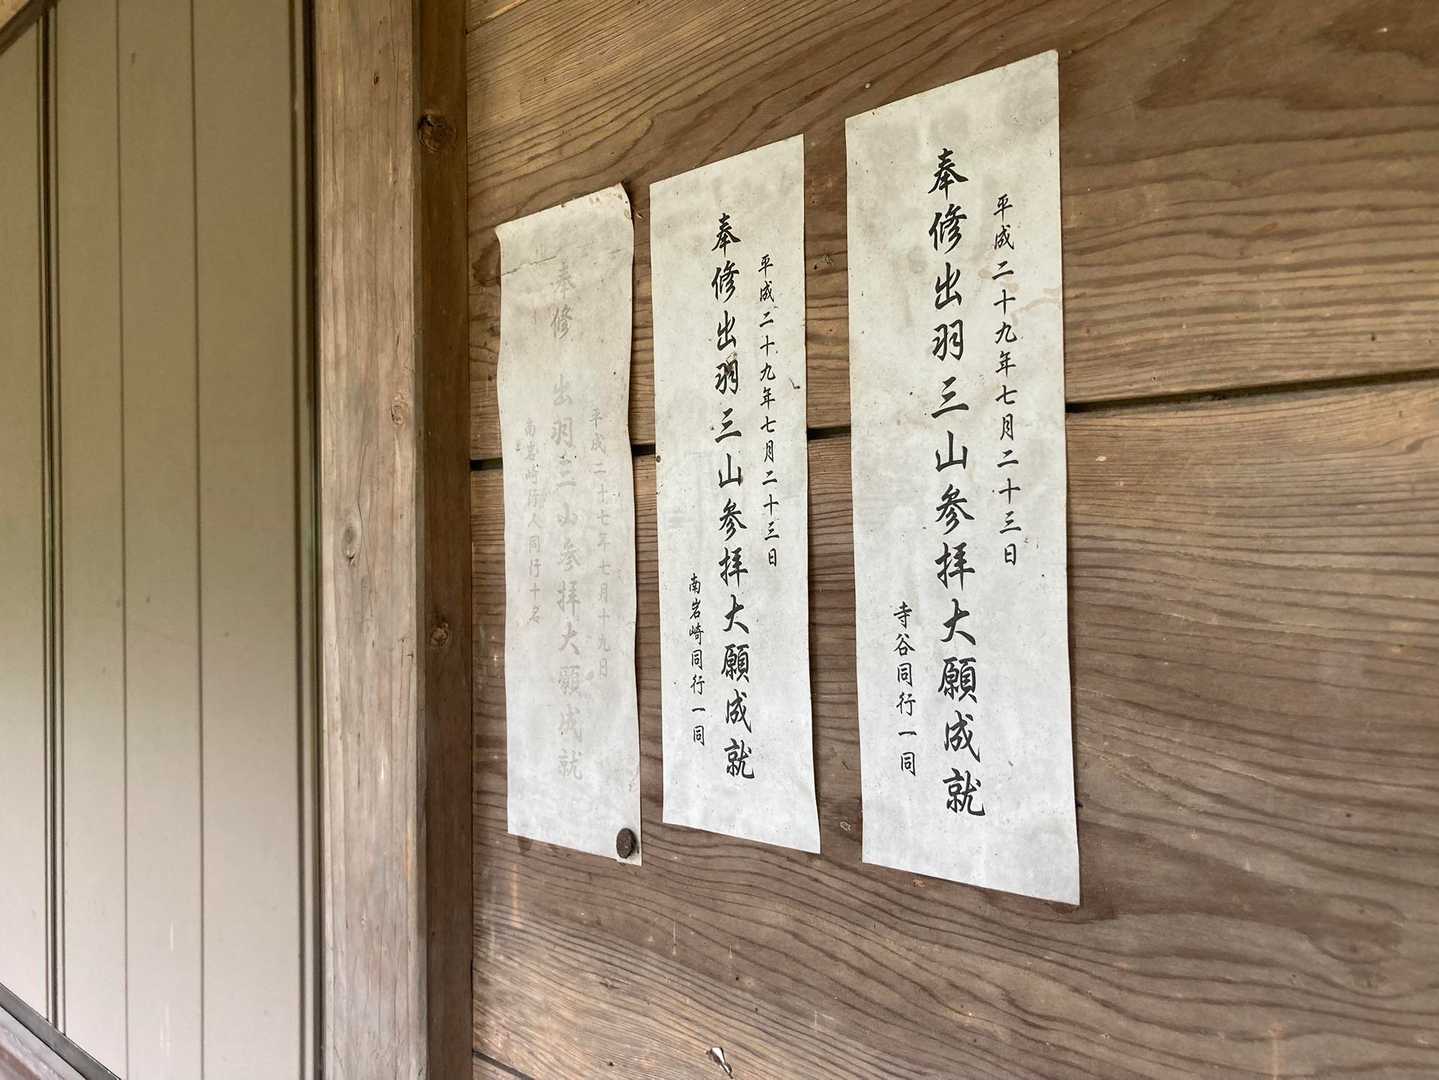 平成二十九年七月二十三日
奉修出羽三山参拝大願成就
寺谷同行一同
平成二十九年七月二十三日
奉修出羽三山参拝大願成就
南岩崎同行一同
平成二十七年七月十九日
奉修 出羽三山参拝大願成就
南岩崎行人同行十名